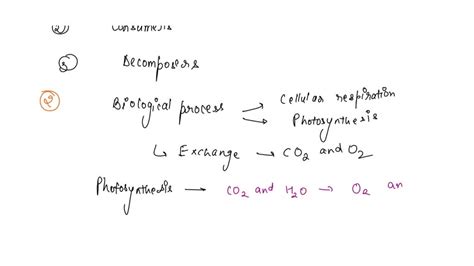 ② Consumers
③ Decomposers
② Biological process → Cellular respiration
→ Photosynthesis
↳ Exchange → CO2 and O2
Photosynthesis — CO2 and H2O → O2 an